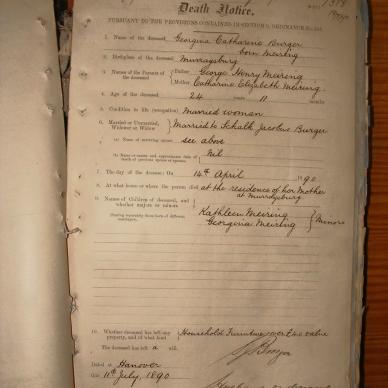 Death Notice.
PURSUANT TO THE PROVISIONS CONTAINED IN SECTION 9, ORDINANCE
1. Name of the deceased Georgina Catharine Burger
born Meiring
2. Birthplace of the deceased Murraysburg
3. Names of the Parents of the deceased Father George Henry Meiring
Mother Catharine Elizabeth Meiring
4. Age of the deceased 24 years 11 months
5. Condition in life (occupation) Married woman
6. Married or Unmarried, Widower or Widow Married to Schalk Jacobus Burger
(a) Name of surviving spouse see above
(b) Name or names and approximate date of death of previous spouse or spouses Nil
7. The day of the decease: On 14th April 1890
8. At what house or where the person died at the residence of her Mother
at Murraysburg
9. Names of Children of deceased, and whether majors or minors
Kathleen Meiring
Georgina Meiring Minors
10. Whether deceased has left any property, and of what kind Household Furniture over £ value
The deceased has left a will.
Dated at Hanover
this 11th July, 1890